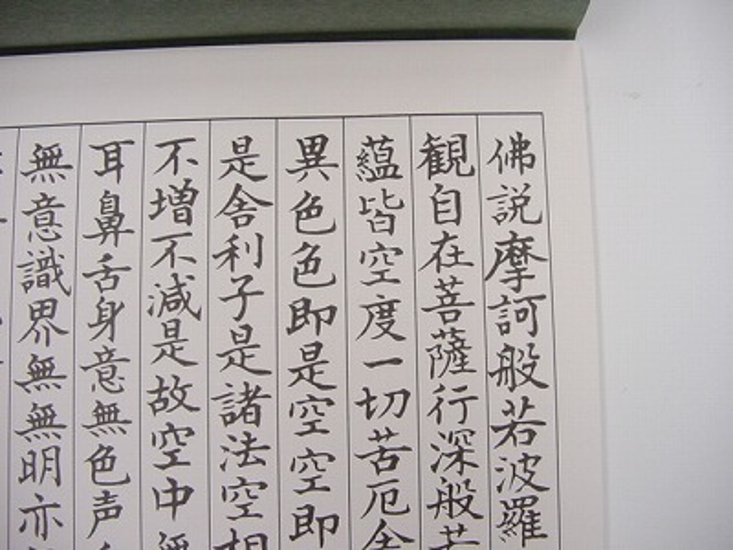 佛説摩訶般若波羅
観自在菩薩行深般若
蘊皆空度一切苦厄舎
異色色即是空空即
是舎利子是諸法空相
不増不減是故空中無
耳鼻舌身意無色声
無意識界無無明亦